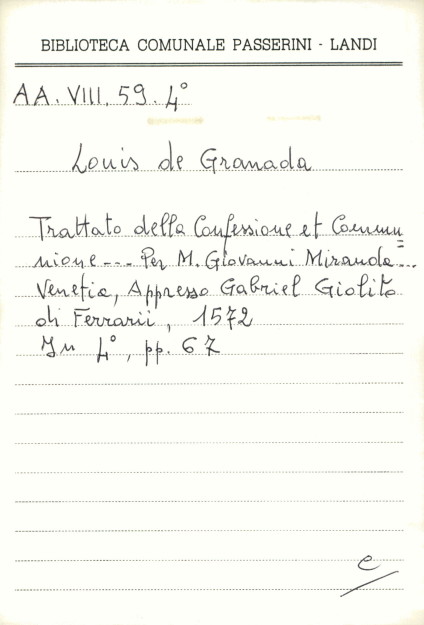 BIBLIOTECA COMUNALE PASSERINI - LANDI
AA. VIII. 59. 4°
Louis de Granada
Trattato della Confessione et Commu=
nione --- Per M. Giovanni Miranda...
Venetia, Appresso Gabriel Giolito
di Ferrarii, 1572
In 4°, pp. 67
e